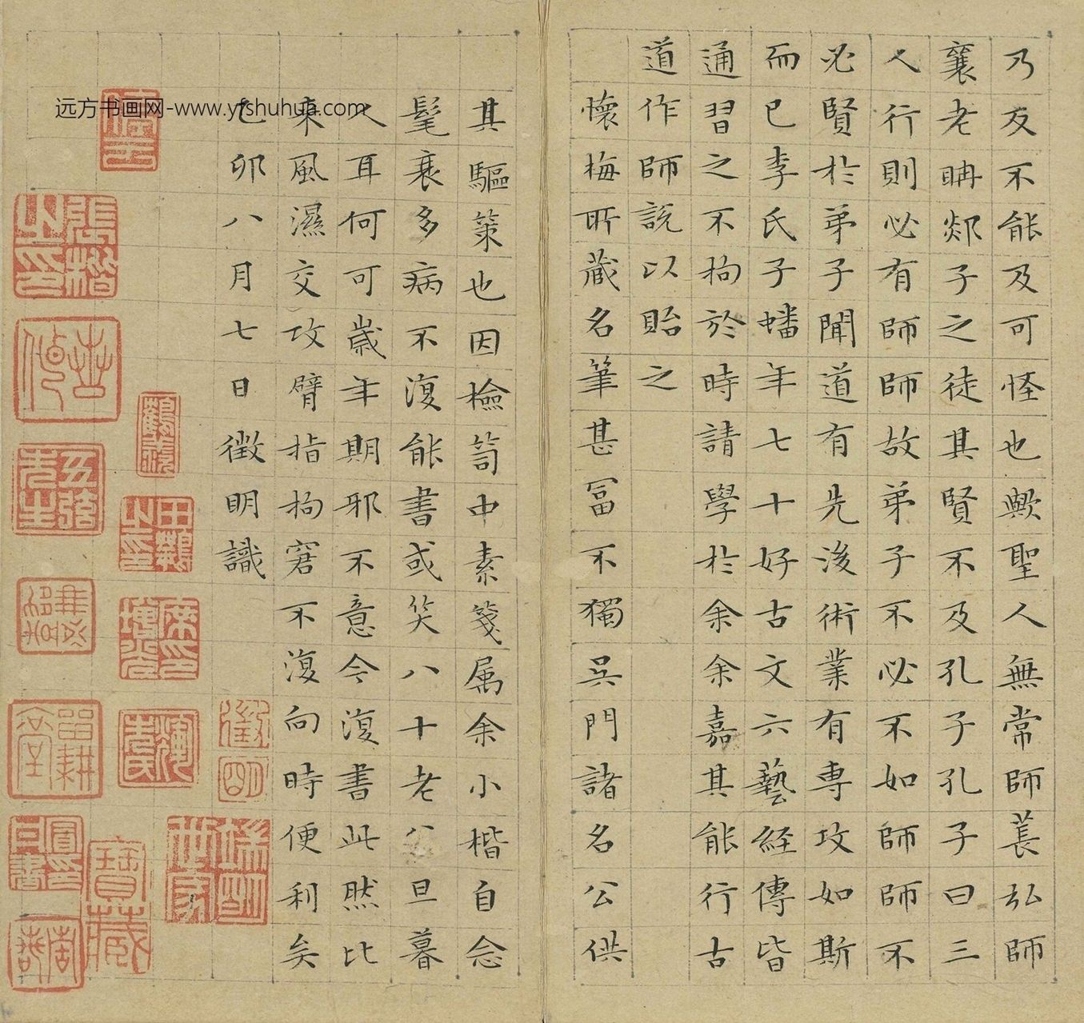 乃反不能及可怪也歟聖人無常師萇弘師
襄老聃郯子之徒其賢不及孔子孔子曰三
人行則必有師師故弟子不必不如師師不
必賢於弟子聞道有先後術業有專攻如斯
而已李氏子蟠年七十好古文六藝經傳皆
通習之不拘於時請學於余余嘉其能行古
道作師說以貽之
懷梅所藏名筆甚冨不獨吳門諸名公供
其驅策也因檢笥中素箋属余小楷自念
髦衰多病不復能書或笑八十老公旦暮
人耳何可歲年期邪不意今復書此然比
來風濕交攻臂指拘窘不復向時便利矣
乙卯八月七日徵明識
徵明
張楷之印
五弦先生
留耕堂
寶藏
远方书画网-www.yfshuhua.com